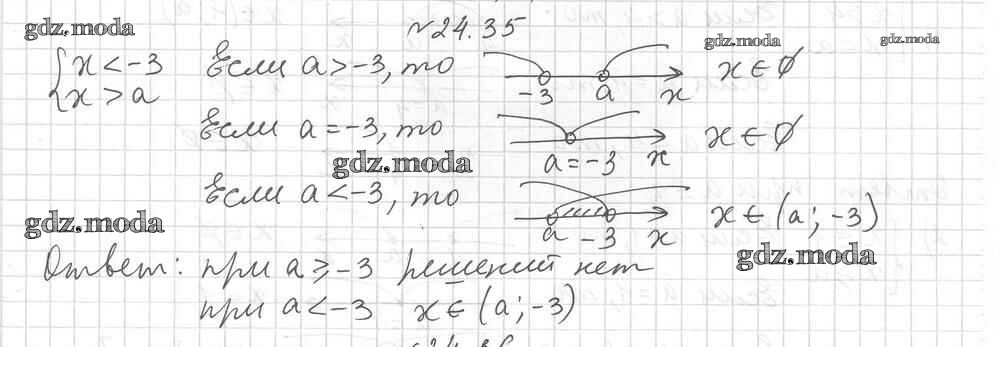 gdz.moda
№24.35
gdz.moda
gdz.moda
{ x < -3
x > a
Если a > -3, то
-3 a x
x ∈ ∅
Если a = -3, то
a = -3 x
x ∈ ∅
gdz.moda
Если a < -3, то
a -3 x
x ∈ (a; -3)
gdz.moda
gdz.moda
Ответ: при a ⩾ -3 решений нет
при a < -3 x ∈ (a; -3)